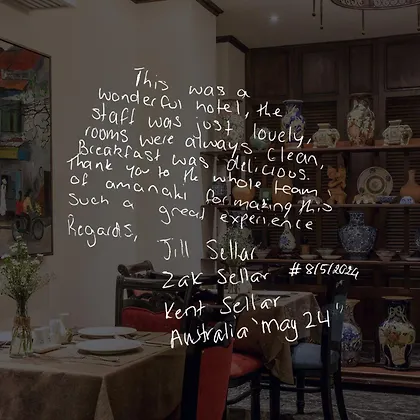 This was a
wonderful hotel, the
staff was just lovely,
rooms were always clean,
Breakfast was delicious.
Thank you to the whole team
of amanaki for making this
such a great experience
Regards,
Jill Sellar
Zak Sellar #8/5/2024
Kent Sellar
Australia "May 24"